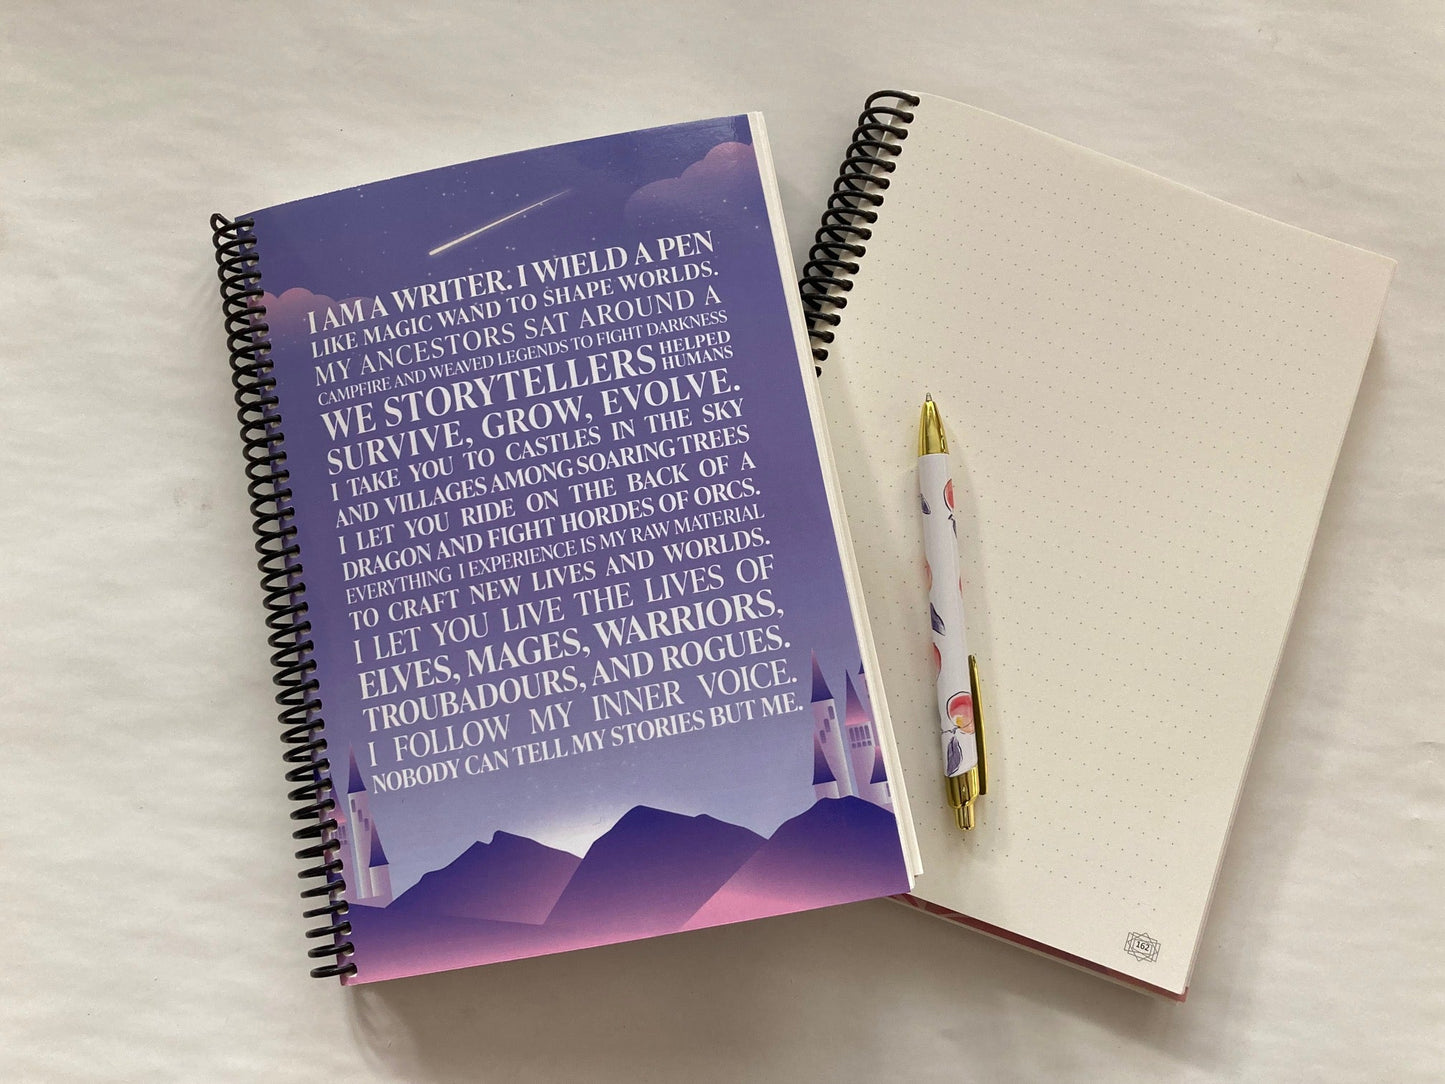 I AM A WRITER. I WIELD A PEN
LIKE MAGIC WAND TO SHAPE WORLDS.
MY ANCESTORS SAT AROUND A
CAMPFIRE AND WEAVED LEGENDS TO FIGHT DARKNESS
WE STORYTELLERS HELPED HUMANS
SURVIVE, GROW, EVOLVE.
I TAKE YOU TO CASTLES IN THE SKY
AND VILLAGES AMONG SOARING TREES
I LET YOU RIDE ON THE BACK OF A
DRAGON AND FIGHT HORDES OF ORCS.
EVERYTHING I EXPERIENCE IS MY RAW MATERIAL
TO CRAFT NEW LIVES AND WORLDS.
I LET YOU LIVE THE LIVES OF
ELVES, MAGES, WARRIORS,
TROUBADOURS, AND ROGUES.
I FOLLOW MY INNER VOICE.
NOBODY CAN TELL MY STORIES BUT ME.
162